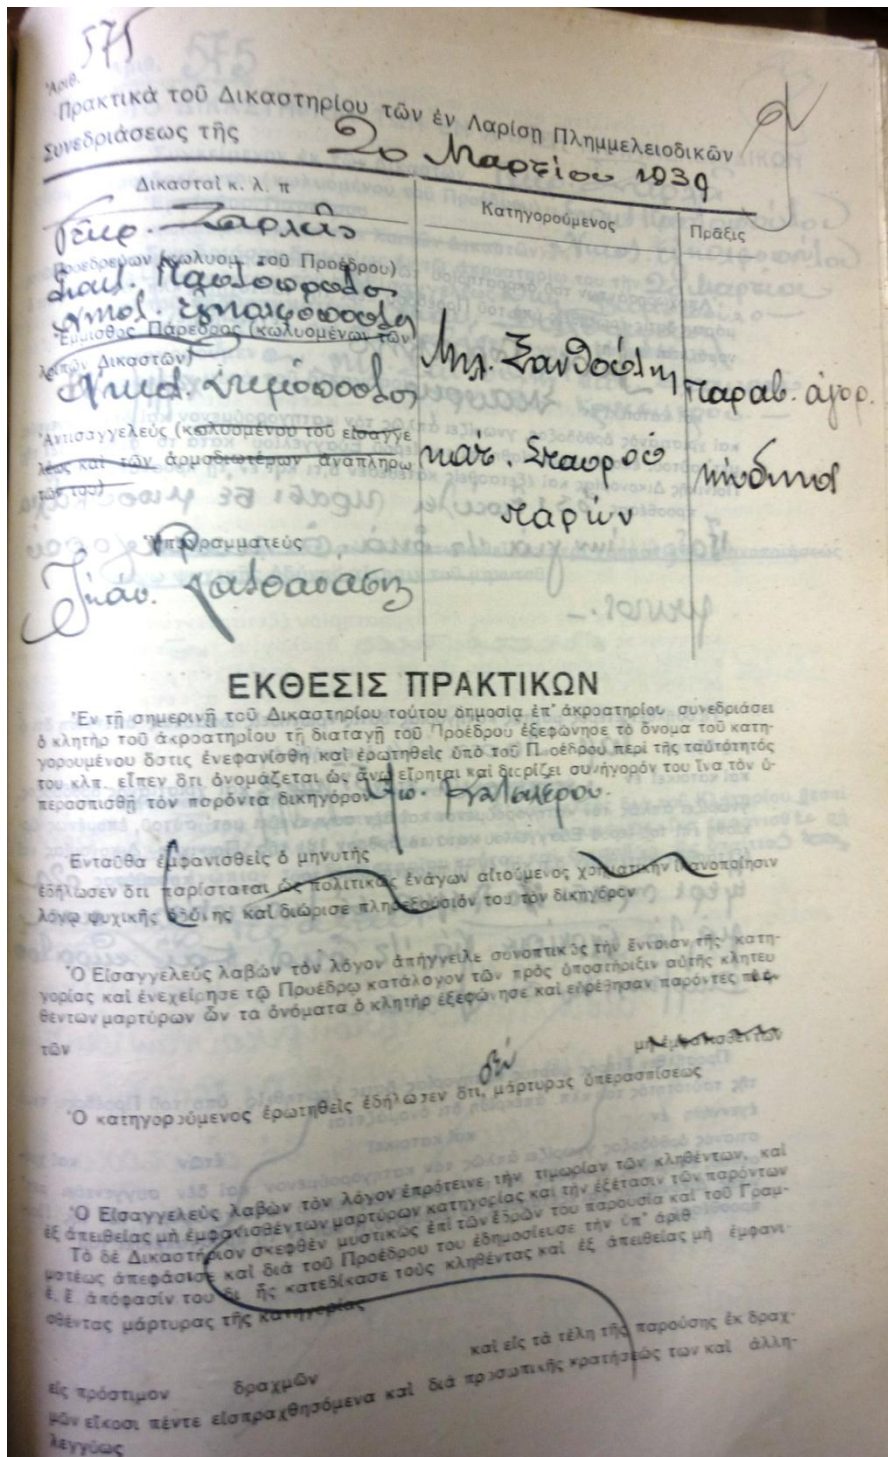 Ἀριθ. 575
Πρακτικὰ τοῦ Δικαστηρίου τῶν ἐν Λαρίσῃ Πλημμελειοδικῶν
Συνεδριάσεως τῆς 20 Μαρτίου 1939
Δικασταὶ κ. λ. π
Κατηγορούμενος
Πρᾶξις
Προεδρεύων (κωλυομ. τοῦ Προέδρου)
Ἔμμισθος Πάρεδρος (κωλυομένων τῶν
λοιπῶν Δικαστῶν)
Μιχ. Ξανθούλη
παραβ. ἀγορ.
Ἀντισαγγελεὺς (κωλυομένου τοῦ εἰσαγγε
λέως καὶ τῶν ἁρμοδιωτέρων ἀναπληρω
τῶν του)
κάτ. Σταυροῦ
κώδικος
παρών
Ὑπογραμματεὺς
ΕΚΘΕΣΙΣ ΠΡΑΚΤΙΚΩΝ
Ἐν τῇ σημερινῇ τοῦ Δικαστηρίου τούτου δημοσίᾳ ἐπ' ἀκροατηρίου συνεδριάσει
ὁ κλητὴρ τοῦ ἀκροατηρίου τῇ διαταγῇ τοῦ Προέδρου ἐξεφώνησε τὸ ὄνομα τοῦ κατη-
γορουμένου ὅστις ἐνεφανίσθη καὶ ἐρωτηθεὶς ὑπὸ τοῦ Προέδρου περὶ τῆς ταὐτότητός
του κλπ. εἶπεν ὅτι ὀνομάζεται ὡς ἄνω εἴρηται καὶ διορίζει συνήγορόν του ἵνα τὸν ὑ-
περασπισθῇ τὸν παρόντα δικηγόρον
Ἐνταῦθα ἐμφανισθεὶς ὁ μηνυτὴς
ἐδήλωσεν ὅτι παρίσταται ὡς πολιτικῶς ἐνάγων αἰτούμενος χρηματικὴν ἱκανοποίησιν
λόγῳ ψυχικῆς ὀδύνης καὶ διώρισε πληρεξούσιόν του τὸν δικηγόρον
Ὁ Εἰσαγγελεὺς λαβὼν τὸν λόγον ἀπήγγειλε συνοπτικῶς τὴν ἔννοιαν τῆς κατη-
γορίας καὶ ἐνεχείρησε τῷ Προέδρῳ κατάλογον τῶν πρὸς ὑποστήριξιν αὐτῆς κλητευ
θέντων μαρτύρων ὧν τα ὀνόματα ὁ κλητὴρ ἐξεφώνησε καὶ εὑρέθησαν παρόντες πλὴν
τῶν μὴ ἐμφανισθέντων
Ὁ κατηγορούμενος ἐρωτηθεὶς ἐδήλωσεν ὅτι, δὲν μάρτυρας ὑπερασπίσεως
Ὁ Εἰσαγγελεὺς λαβὼν τὸν λόγον ἐπρότεινε τὴν τιμωρίαν τῶν κληθέντων, καὶ
ἐξ ἀπειθείας μὴ ἐμφανισθέντων μαρτύρων κατηγορίας καὶ τὴν ἐξέτασιν τῶν παρόντων
Τὸ δὲ Δικαστήριον σκεφθὲν μυστικῶς ἐπὶ τῶν ἑδρῶν του παρουσίᾳ καὶ τοῦ Γραμ-
ματέως ἀπεφάσισε καὶ διὰ τοῦ Προέδρου του ἐδημοσίευσε τὴν ὑπ' ἀριθ
ἐ. ἔ. ἀπόφασίν του δι ἧς κατεδίκασε τοὺς κληθέντας καὶ ἐξ ἀπειθείας μὴ ἐμφανι-
σθέντας μάρτυρας τῆς κατηγορίας
εἰς πρόστιμον δραχμῶν καὶ εἰς τὰ τέλη τῆς παρούσης ἐκ δραχ-
μῶν εἴκοσι πέντε εἰσπραχθησόμενα καὶ διὰ προσωπικῆς κρατήσεώς των καὶ ἀλλη-
λεγγύως